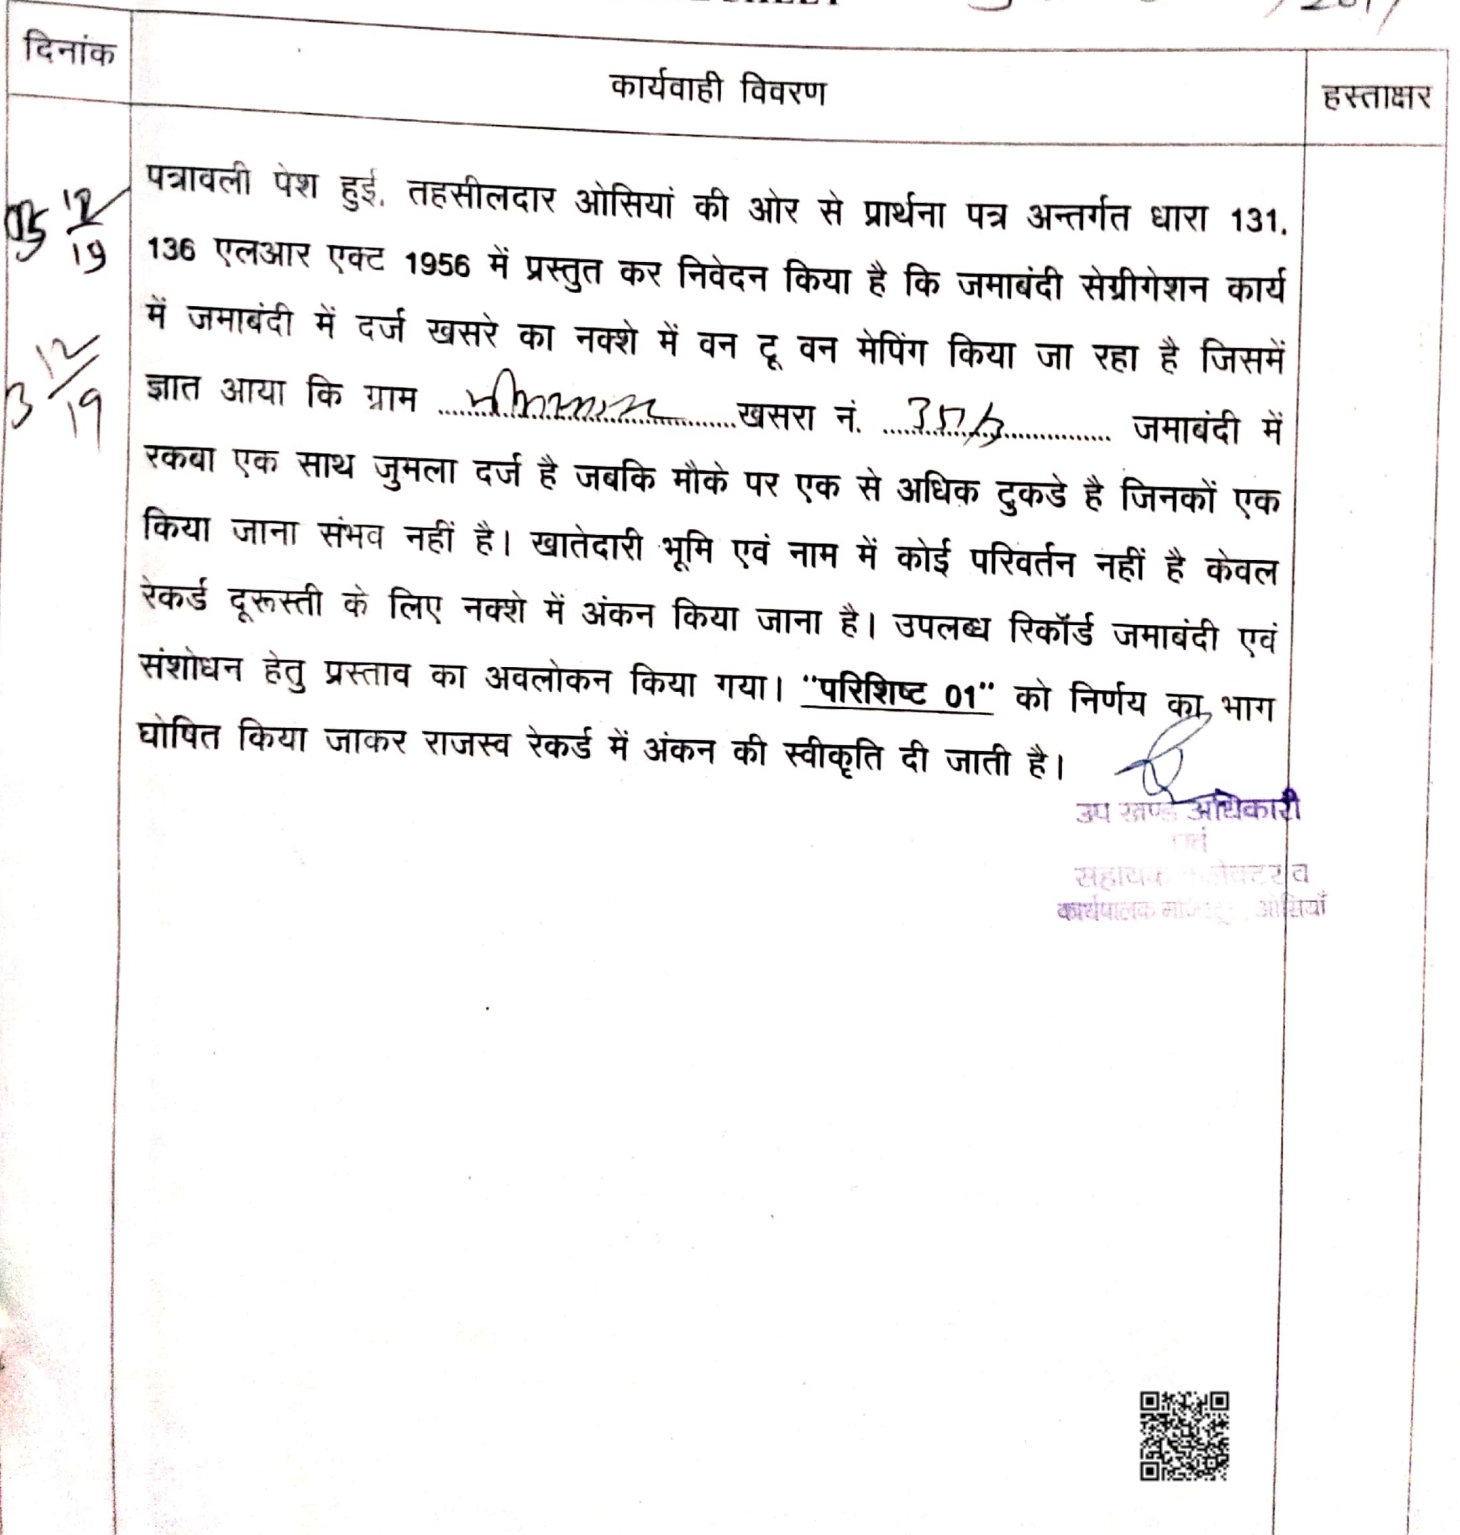 SHEET
दिनांक
कार्यवाही विवरण
हस्ताक्षर
12
19
3 12
19
पत्रावली पेश हुई, तहसीलदार ओसियां की ओर से प्रार्थना पत्र अन्तर्गत धारा 131,
136 एलआर एक्ट 1956 में प्रस्तुत कर निवेदन किया है कि जमाबंदी सेग्रीगेशन कार्य
में जमाबंदी में दर्ज खसरे का नक्शे में वन टू वन मेपिंग किया जा रहा है जिसमें
ज्ञात आया कि ग्राम ........ खसरा नं. ........ जमाबंदी में
रकबा एक साथ जुमला दर्ज है जबकि मौके पर एक से अधिक टुकडे है जिनकों एक
किया जाना संभव नहीं है। खातेदारी भूमि एवं नाम में कोई परिवर्तन नहीं है केवल
रेकर्ड दूरूस्ती के लिए नक्शे में अंकन किया जाना है। उपलब्ध रिकॉर्ड जमाबंदी एवं
संशोधन हेतु प्रस्ताव का अवलोकन किया गया। "परिशिष्ट 01" को निर्णय का भाग
घोषित किया जाकर राजस्व रेकर्ड में अंकन की स्वीकृति दी जाती है।
उप खण्ड अधिकारी
एवं
सहायक कलेक्टर व
कार्यपालक ओसियाँ